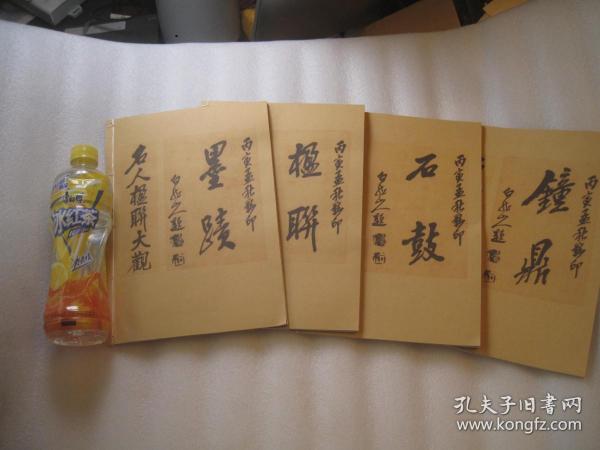 康師傅
冰红茶
名人楹聯大觀
墨蹟
丙寅孟秋影印
楹聯
丙寅孟秋影印
石鼓
丙寅孟秋影印
鐘鼎
丙寅孟秋影印
孔夫子旧书网
www.kongfz.com